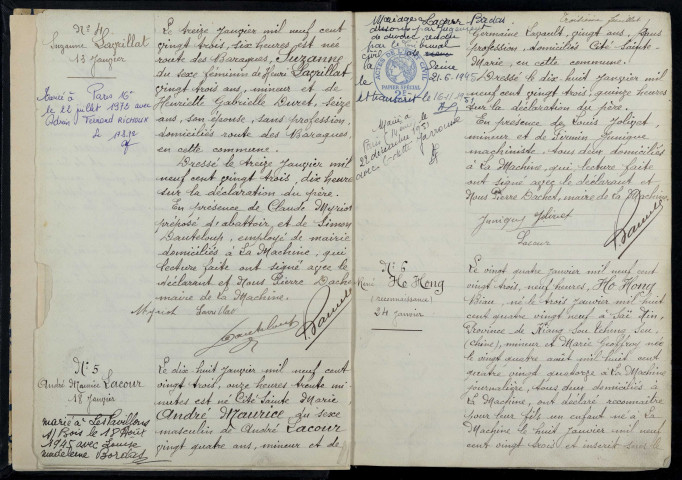 N° 4
Suzanne Layrillat
13 Janvier
Marié à Paris 16e
le 22 juillet 1975 avec
Fernand RICHOUX
Le treize Janvier mil neuf cent
vingt trois, six heures est née
route des Baraques, Suzanne
du sexe féminin de Layrillat
vingt trois ans, mineur et de
Henriette Gabrielle Duret, seize
ans, son épouse, sans profession,
domiciliés route des Baraques,
en cette commune.
Dressé le treize Janvier mil
neuf cent vingt trois, dix heures
sur la déclaration du père.
En présence de Claude Myriot
préposé d'abattoir, et de Simon
Dauteloup, employé de mairie
domiciliés à La Machine, qui
lecture faite ont signé avec le
déclarant et Nous Pierre Dachet
maire de la Machine.
N° 5
André Maurice Lacour
18 Janvier
marié à Les Pavillons
s/ Bois le 18 Août
1945 avec Louise
Madeleine Bordas
Le dix huit Janvier mil neuf cent
vingt trois, onze heures trente mi-
nutes est né Cité Sainte Marie
André Maurice du sexe
masculin de André Lacour
vingt quatre ans, mineur et de
Mariage Lacour Badas
dissous par jugement
de divorce rendu
par le tribunal
civil de la
Seine
le 21-6-1945
et transcrit le 16-1-1951
Marié à
le
22 décembre 1951
avec
Troisième feuillet
Germaine Lazault, vingt ans, sans
profession, domiciliés Cité Sainte-
Marie, en cette commune.
Dressé le dix huit Janvier mil
neuf cent vingt trois, 
sur la déclaration du père.
En présence de Louis Joligot
mineur et de Firmin Junique
machiniste tous deux domiciliés
à La Machine, qui lecture faite
ont signé avec le déclarant et
Nous Pierre Dachet, maire de la Machine.
Lacour
N° 6
Ho Hong
(reconnaissance)
24 janvier
Le vingt quatre janvier mil neuf cent
vingt trois, neuf heures, Ho Hong
né le trois janvier mil huit
cent quatre vingt neuf à
Province de Kiang Sou
(Chine), mineur et Marie Geoffroy née
le vingt quatre août mil huit cent
quatre vingt quatorze à La Machine
journalière, tous deux domiciliés à
La Machine, ont déclaré reconnaître
pour leur fils un enfant né à La-
Machine le huit janvier mil neuf
cent vingt trois et inscrit sur le